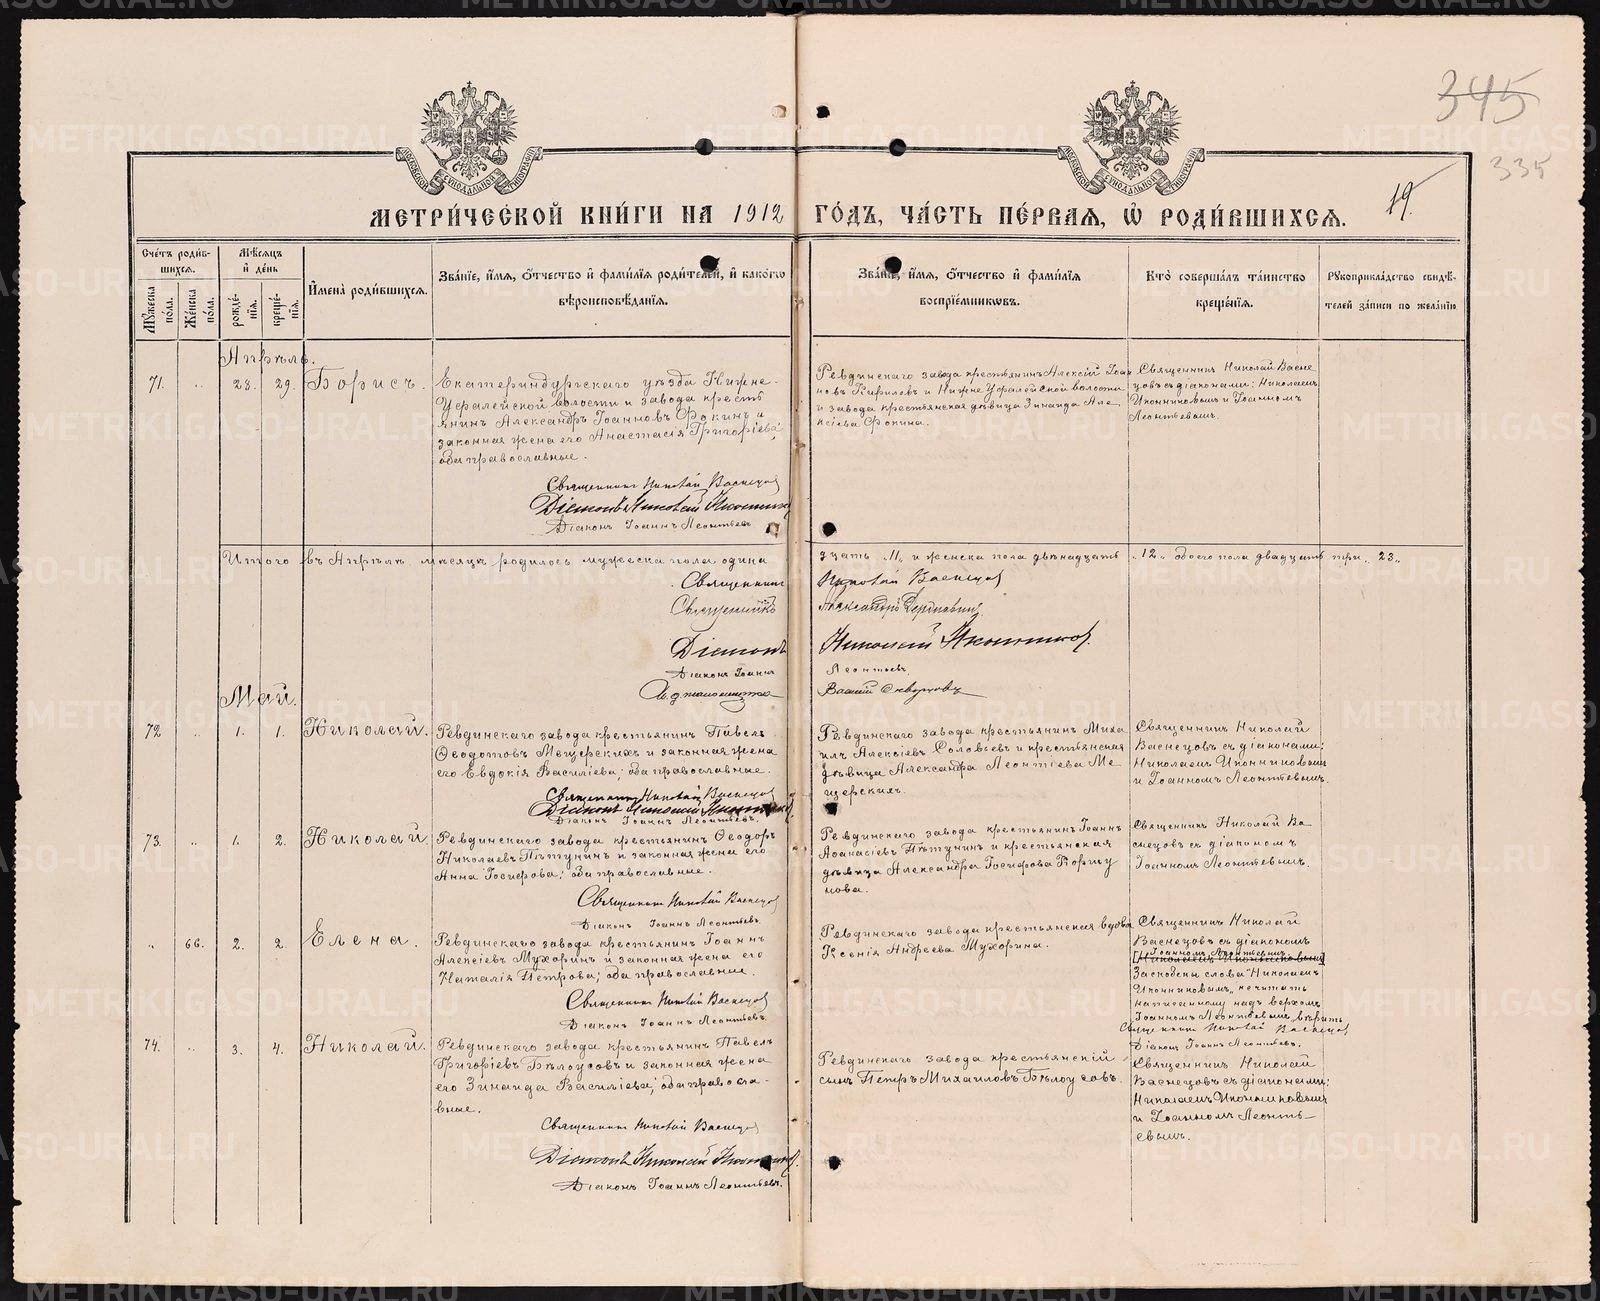 345
335
19.
МЕТРИ́ЧЕСКОЙ КНИ́ГИ НА 1912 ГО́ДЪ, ЧА́СТЬ ПЕ́РВАЯ, Ѿ РОДИ́ВШИХСЯ.
Сче́тъ роди́в-
шихся.
Мѣ́сяцъ
и҆ де́нь
Мꙋ́жеска по́ла.
Же́нска по́ла.
рожде́-
нїя.
креще́-
нїя.
И҆мена̀ роди́вшихся.
Зва́нїе, и҆́мя, ѻ҆́тчество и҆ фами́лїя роди́телей, и҆ како́гѡ
вѣроисповѣ́данїя.
Зва́нїе, и҆́мя, ѻ҆́тчество и҆ фами́лїя
воспрїе́мникѡвъ.
Кто̀ соверша́лъ та́инство
креще́нїя.
Рꙋкоприкла́дство свидѣ́-
телей за́писи по жела́нїю
Апрѣль.
71. „ 28. 29. Борисъ.
Екатеринбургскаго уѣзда Нижне-
Уфалейской волости и завода кресть
янинъ Александръ Іоанновъ Фокинъ и
законная жена его Анастасія Григоріева;
оба православные.
Священникъ Николай Васнецов
Діаконъ Николай Иконников
Діаконъ Іоаннъ Леонтьевъ
Ревдинскаго завода крестьянинъ Алексій Іоан
новъ Кирилевъ и Нижне Уфалейской волости
и завода крестьянская дѣвица Зинаида Але
ксіева Фокина.
Священникъ Николай Васне
цовъ съ діаконами: Николаемъ
Иконниковымъ и Іоанномъ
Леонтьевымъ.
Итого въ Апрѣлѣ мѣсяцѣ родилось мужеска пола одина
дцать „11„ и женска пола двѣнадцать „12„ обоего пола двадцать три „23„
Священникъ Николай Васнецов
Священникъ Александръ
Діаконъ Николай Иконников.
Діаконъ Іоаннъ Леонтьевъ
И. д. псаломщика Василій Скворцовъ
Май.
72 „ 1. 1. Николай.
Ревдинскаго завода крестьянинъ Павелъ
Ѳеодотовъ Мещерскихъ и законная жена
его Евдокія Василіева; оба православные.
Священникъ Николай Васнецов
Діаконъ Николай Иконников
Діаконъ Іоаннъ Леонтьевъ.
Ревдинскаго завода крестьянинъ Миха
илъ Алексіевъ Соловьевъ и крестьянская
дѣвица Александра Леонтіева Ме
щерскихъ.
Священникъ Николай
Васнецовъ съ діаконами:
Николаемъ Иконниковымъ
и Іоанномъ Леонтьевымъ.
73. „ 1. 2. Николай
Ревдинскаго завода крестьянинъ Ѳеодоръ
Николаевъ Пѣтунинъ и законная жена его
Анна Іосифова; оба православные.
Священникъ Николай Васнецов
Діаконъ Іоаннъ Леонтьевъ.
Ревдинскаго завода крестьянинъ Іоаннъ
Аѳанасіевъ Пѣтунинъ и крестьянская
дѣвица Александра Іосифова Коршу
нова.
Священникъ Николай Ва
снецовъ съ діакономъ
Іоанномъ Леонтьевымъ.
„ 66. 2. 2. Елена.
Ревдинскаго завода крестьянинъ Іоаннъ
Алексіевъ Мухоринъ и законная жена его
Наталія Петрова; оба православные.
Священникъ Николай Васнецов
Діаконъ Іоаннъ Леонтьевъ.
Ревдинскаго завода крестьянская вдова
Ксенія Андреева Мухорина.
Священникъ Николай
Васнецовъ съ діакономъ
Іоанномъ Леонтьевымъ
[Николаемъ Иконниковымъ]
Заскобены слова „Николаемъ
Иконниковымъ„ не читать
написанному надъ верхомъ
Іоанномъ Леонтьевымъ„ вѣрить
Священникъ Николай Васнецов
Діаконъ Іоаннъ Леонтьевъ.
74. „ 3. 4. Николай.
Ревдинскаго завода крестьянинъ Павелъ
Григоріевъ Бѣлоусовъ и законная жена
его Зинаида Василіева; оба правосла-
вные.
Священникъ Николай Васнецов
Діаконъ Николай Иконников.
Діаконъ Іоаннъ Леонтьевъ.
Ревдинскаго завода крестьянскій
сынъ Петръ Михаиловъ Бѣлоусовъ.
Священникъ Николай
Васнецовъ съ діаконами:
Николаемъ Иконниковымъ
и Іоанномъ Леонть-
евымъ.
METRIKI.GASO-URAL.RU